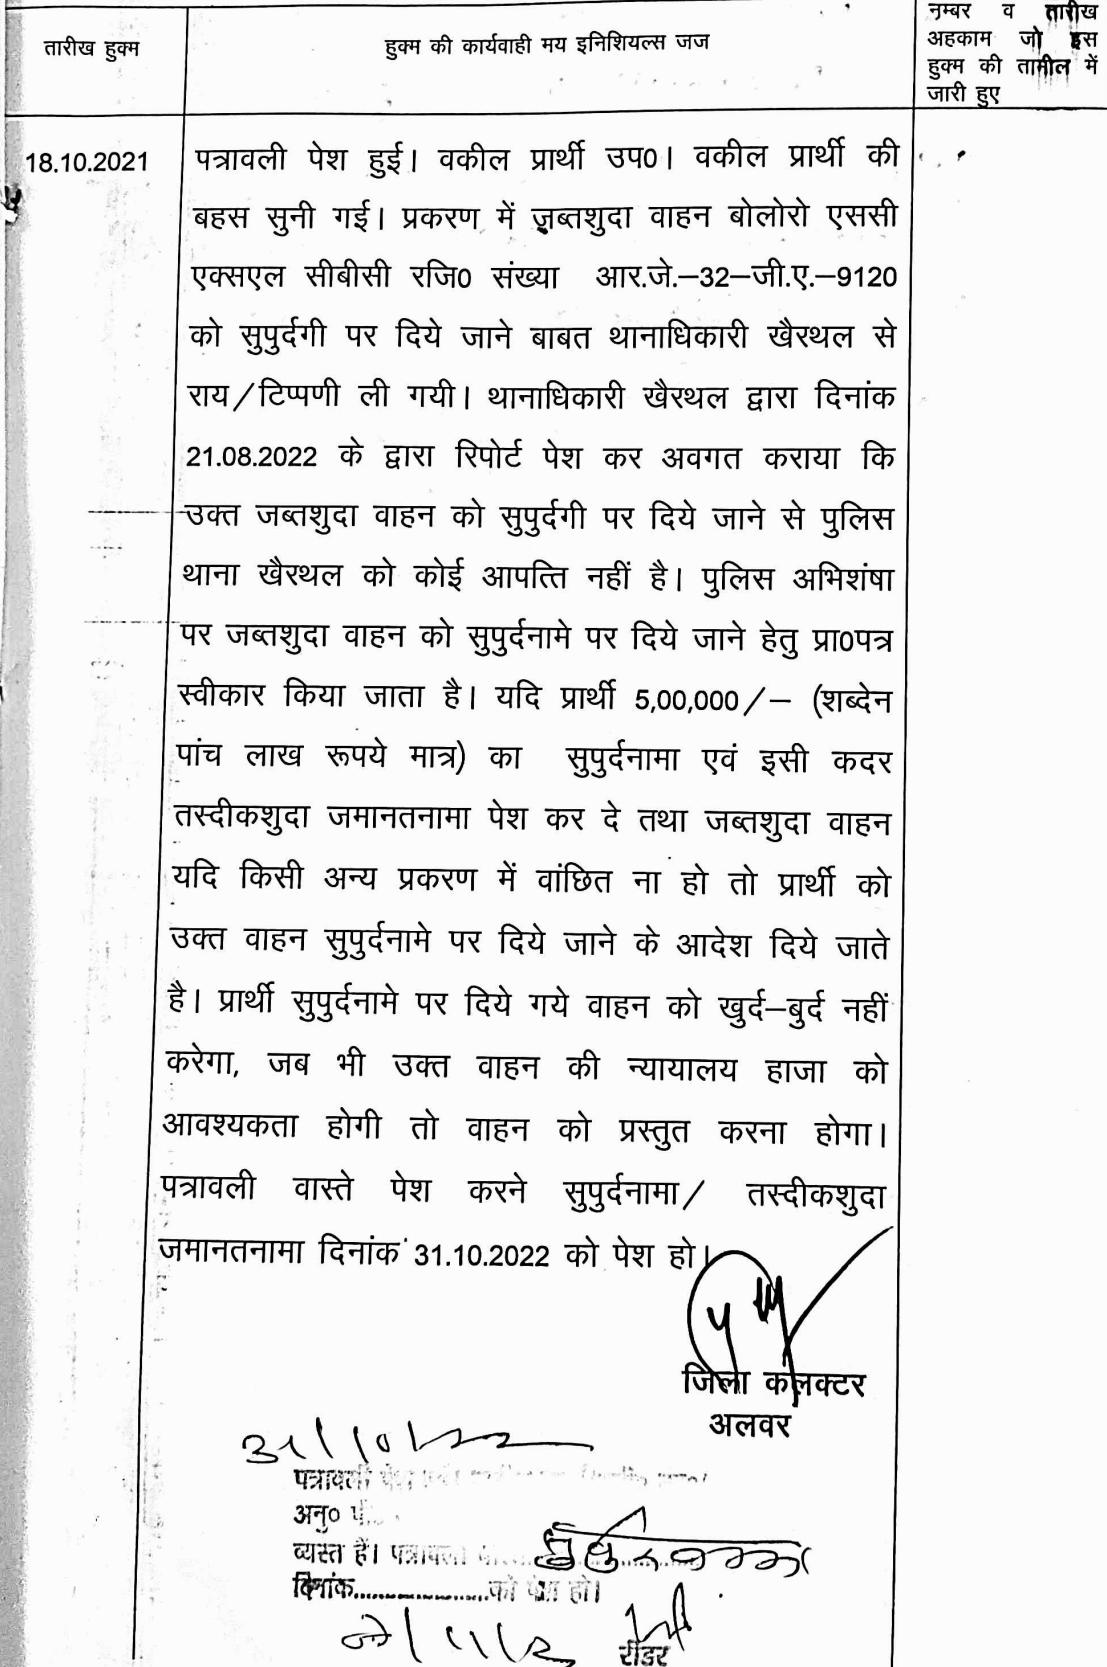 तारीख हुक्म
हुक्म की कार्यवाही मय इनिशियल्स जज
नम्बर व तारीख
अहकाम जो इस
हुक्म की तामील में
जारी हुए
18.10.2021
पत्रावली पेश हुई। वकील प्रार्थी उप0। वकील प्रार्थी की
बहस सुनी गई। प्रकरण में ज़ब्तशुदा वाहन बोलोरो एससी
एक्सएल सीबीसी रजि0 संख्या आर.जे.–32–जी.ए.–9120
को सुपुर्दगी पर दिये जाने बाबत थानाधिकारी खैरथल से
राय/टिप्पणी ली गयी। थानाधिकारी खैरथल द्वारा दिनांक
21.08.2022 के द्वारा रिपोर्ट पेश कर अवगत कराया कि
उक्त जब्तशुदा वाहन को सुपुर्दगी पर दिये जाने से पुलिस
थाना खैरथल को कोई आपत्ति नहीं है। पुलिस अभिशंषा
पर जब्तशुदा वाहन को सुपुर्दनामे पर दिये जाने हेतु प्रा0पत्र
स्वीकार किया जाता है। यदि प्रार्थी 5,00,000/– (शब्देन
पांच लाख रूपये मात्र) का सुपुर्दनामा एवं इसी कदर
तस्दीकशुदा जमानतनामा पेश कर दे तथा जब्तशुदा वाहन
यदि किसी अन्य प्रकरण में वांछित ना हो तो प्रार्थी को
उक्त वाहन सुपुर्दनामे पर दिये जाने के आदेश दिये जाते
है। प्रार्थी सुपुर्दनामे पर दिये गये वाहन को खुर्द–बुर्द नहीं
करेगा, जब भी उक्त वाहन की न्यायालय हाजा को
आवश्यकता होगी तो वाहन को प्रस्तुत करना होगा।
पत्रावली वास्ते पेश करने सुपुर्दनामा/ तस्दीकशुदा
जमानतनामा दिनांक 31.10.2022 को पेश हो।
जिला कलक्टर
अलवर
31/10/22
पत्रावली
अनु0
व्यस्त हैं। पत्रावली
दिनांक....................को पेश हो।
रीडर